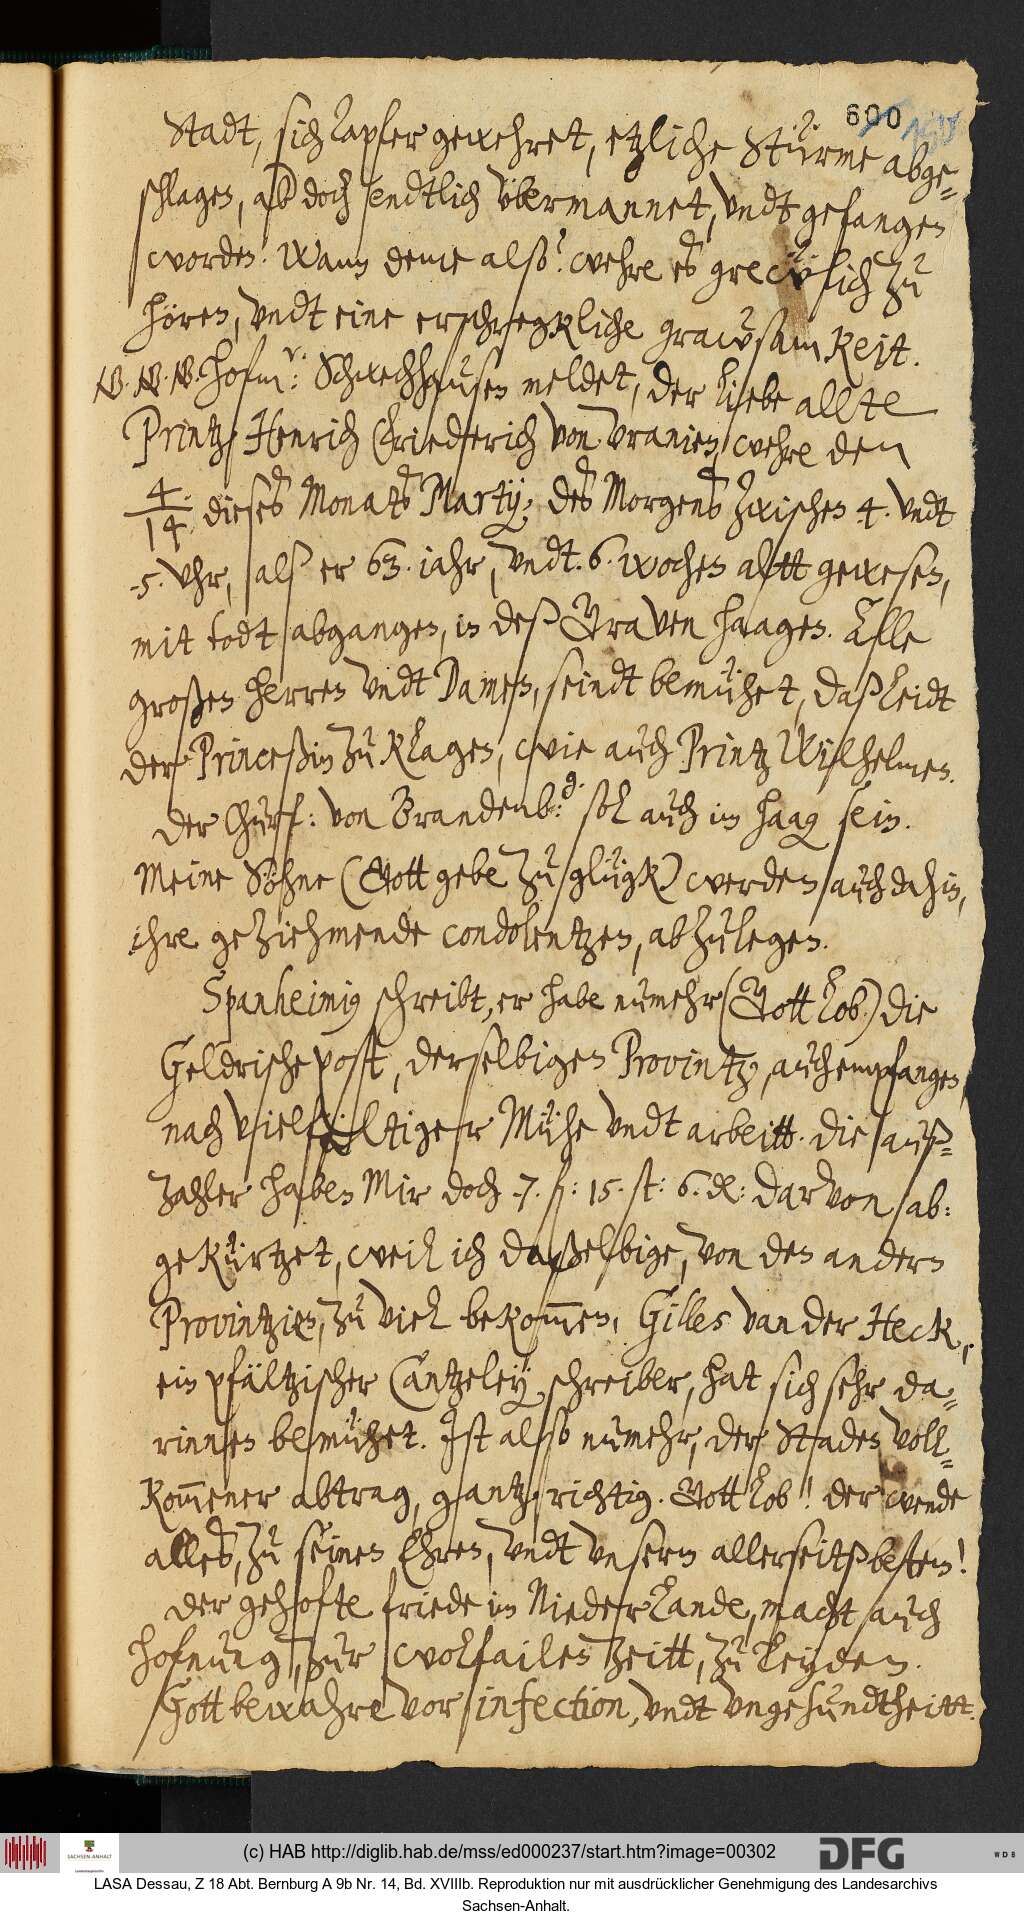 600
Stadt, sich tapfer gewehret, etzliche Stürme abge-
schlagen, aber doch endtlich übermannet, undt gefangen
worden. Wann deme also? wehre es grewlich zu
hören, undt eine erschregkliche grausamkeit.
NB. NB. NB. Hofmr: Schwechhausen meldet, der liebe allte
Printz, Henrich Friederich von Uranien, wehre den
4/14. dieses Monats Martij, des Morgens zwischen 4. undt
5. Uhr, als er 63. iahr, undt 6. wochen altt gewesen,
mit todt abgangen, in deß Graven Haagen. Alle
großen Herren undt Damen, seindt bemühet, daß leidt
der Princeßin zu klagen, wie auch Printz Wilhelmen.
der Churf: von Brandenb:g. sol auch im Haag sein.
Meine Söhne (Gott gebe zu glügk) werden auch dahin,
ihre geziehmende condolentzen, abzulegen.
Spanheimius schreibt, er habe numehr (Gott lob) die
Geldrische post, derselbigen Provintz, auch empfangen,
nach vielfältiger Mühe undt arbeitt. die auß-
zahler haben Mir doch 7. fl: 15. st: 6. d: darvon ab:
gekürtzet, weil ich daßelbige, von den andern
Provintzien, zu viel bekommen. Gilles van der Heck,
ein pfältzischer Cantzeleyschreiber, hat sich sehr da-
rinnen bemühet. Ist also numehr, der Staden voll-
kommener abtrag, gantz richtig. Gott lob! der wende
alles, zu seinen Ehren, undt unserm allerseitß besten!
der gehofte friede im Niederlande, macht auch
hofnung, zur wolfailen zeitt, zu Leyden.
Gott bewahre vor infection, undt ungesundtheitt.
(c) HAB http://diglib.hab.de/mss/ed000237/start.htm?image=00302
SACHSEN-ANHALT
DFG
WDB
LASA Dessau, Z 18 Abt. Bernburg A 9b Nr. 14, Bd. XVIIIb. Reproduktion nur mit ausdrücklicher Genehmigung des Landesarchivs
Sachsen-Anhalt.